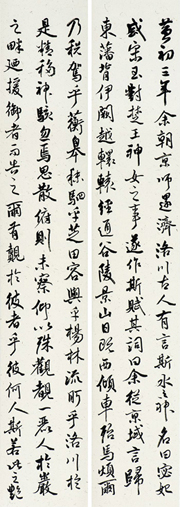 黃初三年余朝京師還濟洛川古人有言斯水之神名曰宓妃
感宋玉對楚王神女之事遂作斯賦其詞曰余從京域言歸
東藩背伊闕越轘轅經通谷陵景山日既西傾車殆馬煩爾
乃稅駕乎蘅皋秣駟乎芝田容與乎楊林流盻乎洛川於
是精移神駭忽焉思散俯則未察仰以殊觀覩一麗人於巖
之畔廼援御者而告之爾有覿於彼者乎彼何人斯若此之艷